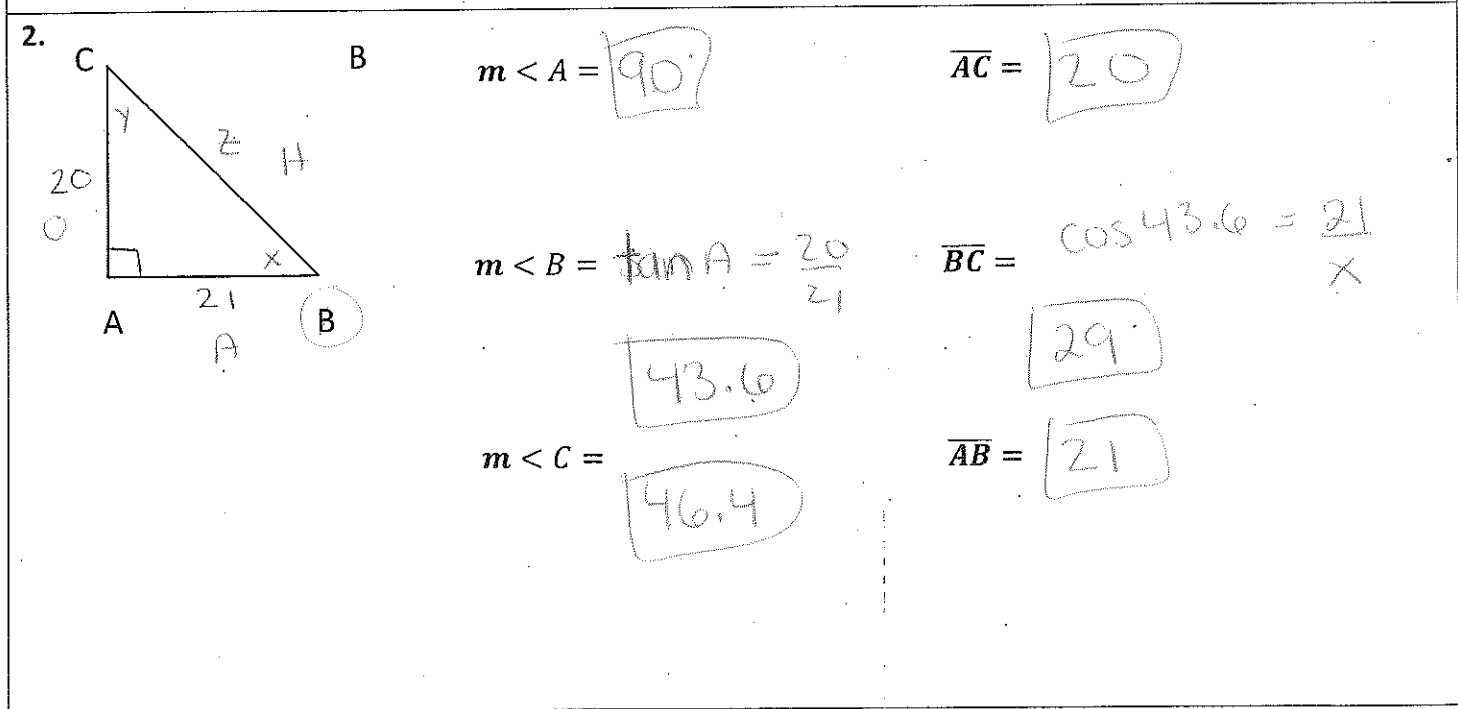 2.
C
B
y
z
H
20
O
x
21
A
B
A
m < A = 90°
m < B = tan A = 20/21
43.6
m < C =
46.4
AC = 20
BC = cos 43.6 = 21/x
29
AB = 21